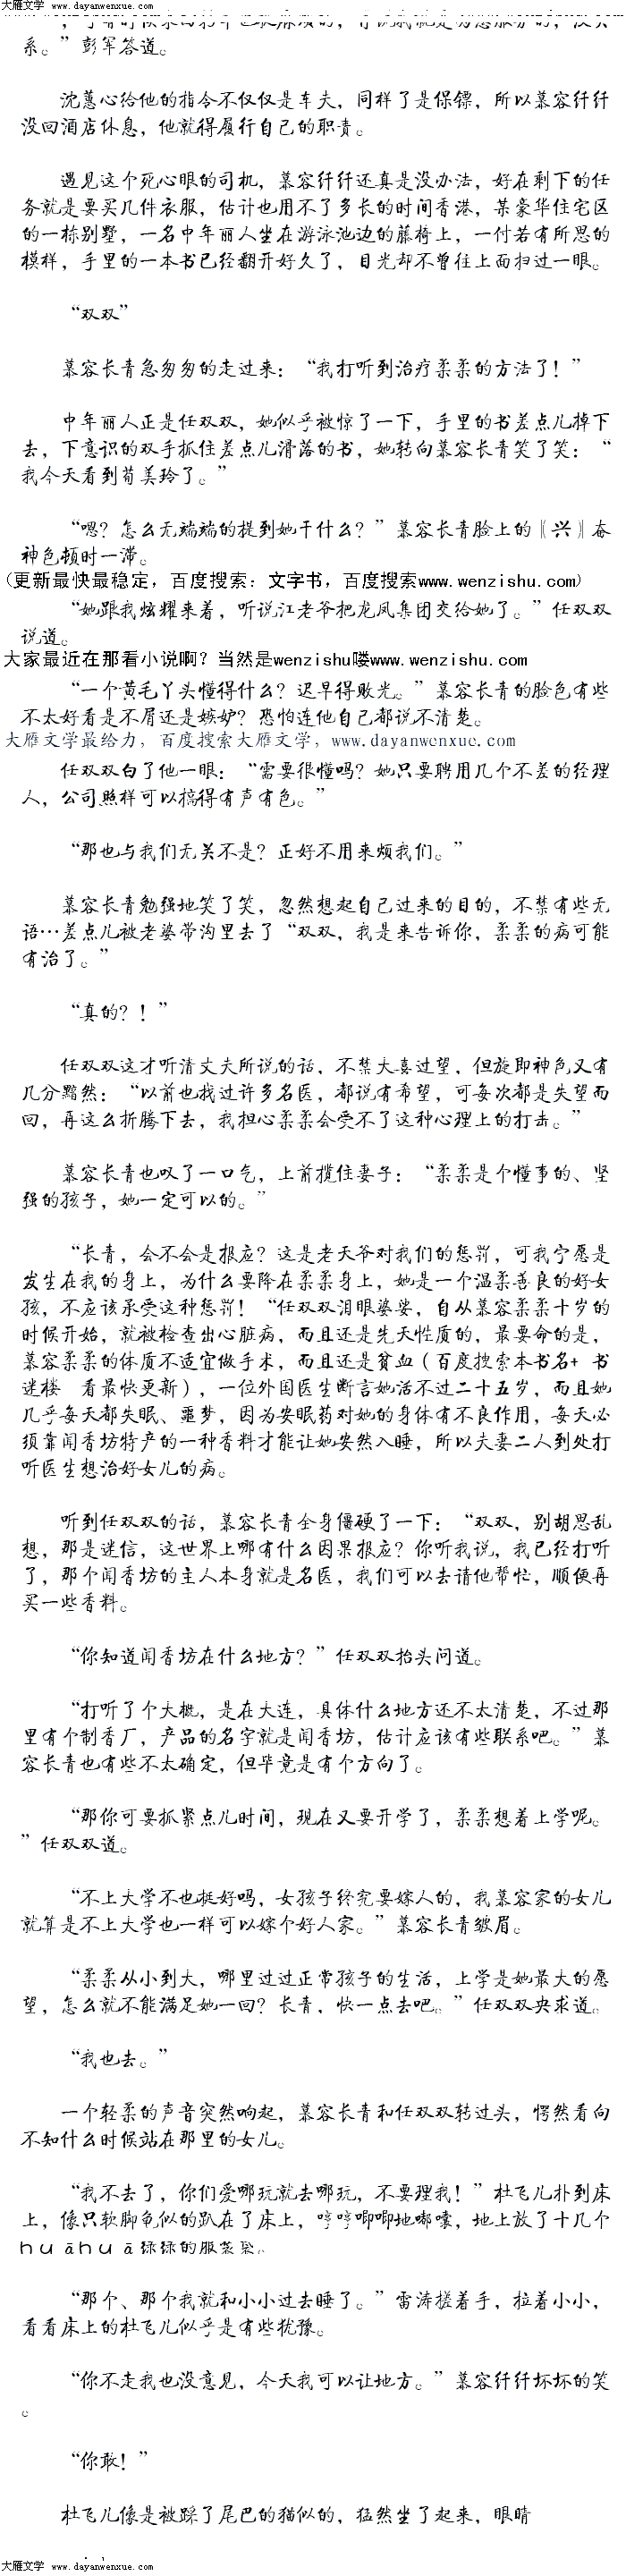 大雁文学 www.dayanwenxue.com
系。”彭军答道。
沈蕙心给他的指令不仅仅是车夫，同样了是保镖，所以慕容纤纤
没回酒店休息，他就得履行自己的职责。
遇见这个死心眼的司机，慕容纤纤还真是没办法，好在剩下的任
务就是要买几件衣服，估计也用不了多长的时间香港，某豪华住宅区
的一栋别墅，一名中年丽人坐在游泳池边的藤椅上，一付若有所思的
模样，手里的一本书已经翻开好久了，目光却不曾往上面扫过一眼。
“双双”
慕容长青急匆匆的走过来：“我打听到治疗柔柔的方法了！”
中年丽人正是任双双，她似乎被惊了一下，手里的书差点儿掉下
去，下意识的双手抓住差点儿滑落的书，她转向慕容长青笑了笑：“
我今天看到苟美玲了。”
“嗯？怎么无端端的提到她干什么？”慕容长青脸上的〖兴〗奋
神色顿时一滞。
(更新最快最稳定，百度搜索：文字书，百度搜索www.wenzishu.com)
“她跟我炫耀来着，听说江老爷把龙凤集团交给她了。”任双双
说道。
大家最近在那看小说啊？当然是wenzishu喽www.wenzishu.com
“一个黄毛丫头懂得什么？迟早得败光。”慕容长青的脸色有些
不太好看是不屑还是嫉妒？恐怕连他自己都说不清楚。
大雁文学最给力，百度搜索大雁文学，www.dayanwenxue.com
任双双白了他一眼：“需要很懂吗？她只要聘用几个不差的经理
人，公司照样可以搞得有声有色。”
“那也与我们无关不是？正好不用来烦我们。”
慕容长青勉强地笑了笑，忽然想起自己过来的目的，不禁有些无
语…差点儿被老婆带沟里去了“双双，我是来告诉你，柔柔的病可能
有治了。”
“真的？！”
任双双这才听清丈夫所说的话，不禁大喜过望，但旋即神色又有
几分黯然：“以前也找过许多名医，都说有希望，可每次都是失望而
回，再这么折腾下去，我担心柔柔会受不了这种心理上的打击。”
慕容长青也叹了一口气，上前揽住妻子：“柔柔是个懂事的、坚
强的孩子，她一定可以的。”
“长青，会不会是报应？这是老天爷对我们的惩罚，可我宁愿是
发生在我的身上，为什么要降在柔柔身上，她是一个温柔善良的好女
孩，不应该承受这种惩罚！“任双双泪眼婆娑，自从慕容柔柔十岁的
时候开始，就被检查出心脏病，而且还是先天性质的，最要命的是，
慕容柔柔的体质不适宜做手术，而且还是贫血（百度搜索本书名+ 书
迷楼 看最快更新），一位外国医生断言她活不过二十五岁，而且她
几乎每天都失眠、噩梦，因为安眠药对她的身体有不良作用，每天必
须靠闻香坊特产的一种香料才能让她安然入睡，所以夫妻二人到处打
听医生想治好女儿的病。
听到任双双的话，慕容长青全身僵硬了一下：“双双，别胡思乱
想，那是迷信，这世界上哪有什么因果报应？你听我说，我已经打听
了，那个闻香坊的主人本身就是名医，我们可以去请他帮忙，顺便再
买一些香料。
“你知道闻香坊在什么地方？”任双双抬头问道。
“打听了个大概，是在大连，具体什么地方还不太清楚，不过那
里有个制香厂，产品的名字就是闻香坊，估计应该有些联系吧。”慕
容长青也有些不太确定，但毕竟是有个方向了。
“那你可要抓紧点儿时间，现在又要开学了，柔柔想着上学呢。
”任双双道。
“不上大学不也挺好吗，女孩子终究要嫁人的，我慕容家的女儿
就算是不上大学也一样可以嫁个好人家。”慕容长青皱眉。
“柔柔从小到大，哪里过过正常孩子的生活，上学是她最大的愿
望，怎么就不能满足她一回？长青，快一点去吧。”任双双央求道。
“我也去。”
一个轻柔的声音突然响起，慕容长青和任双双转过头，愕然看向
不知什么时候站在那里的女儿。
“我不去了，你们爱哪玩就去哪玩，不要理我！”杜飞儿扑到床
上，像只软脚龟似的趴在了床上，哼哼唧唧地嘟囔，地上放了十几个
huāhuā绿绿的服装袋。
“那个、那个我就和小小过去睡了。”雷涛搓着手，拉着小小，
看看床上的杜飞儿似乎是有些犹豫。
“你不走我也没意见，今天我可以让地方。”慕容纤纤坏坏的笑
。
“你敢！”
杜飞儿像是被踩了尾巴的猫似的，猛然坐了起来，眼睛
大雁文学 www.dayanwenxue.com